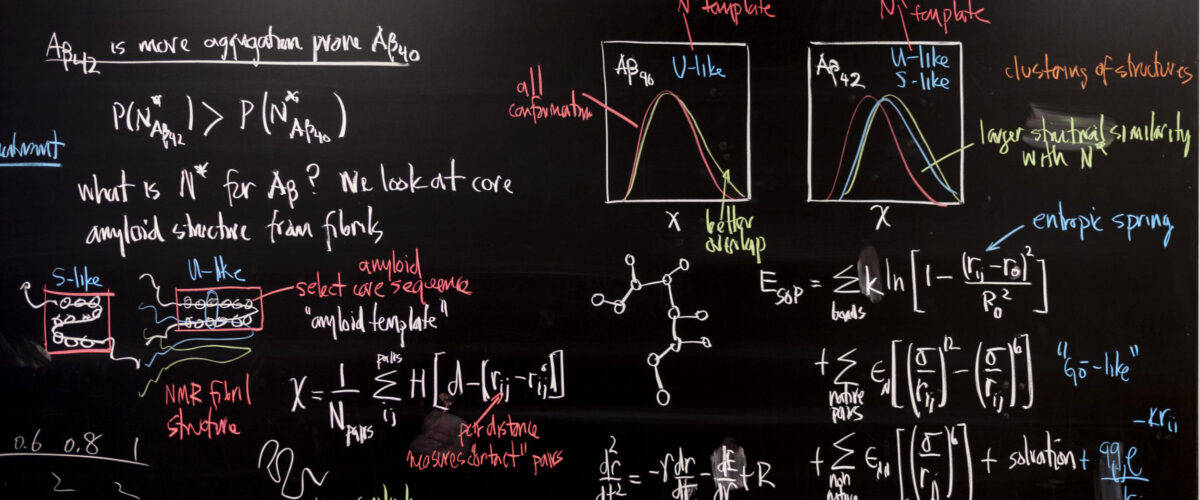 Aβ42 is more aggregation prone Aβ40
P(N*Aβ42) > P(N*Aβ40)
what is N* for Aβ? We look at core
amyloid structure from fibrils
S-like
U-like
amyloid
select core sequence
"amyloid template"
NMR fibril
structure
χ = 1/Npairs Σ pairs ij H[d-(rij-rij°)]
pair distance
measures "contact" pairs
0.6 0.8 1
2 2
N* template
Aβ40
U-like
all
conformation
x
better
overlap
N* template
Aβ42
U-like
S-like
χ
clustering of structures
larger structural similarity
with N*
entropic spring
ESOP = Σ bonds k ln[1-(rij-ro)²/R0²]
+ Σ native pairs ϵN[(σ/rij)^12-(σ/rij)^6]
"Gō-like"
+ Σ non native ϵNN[(σ/rij)^6] + solvation +
-κrij
d²r/dt² = -γ dr/dt - dE/dr + R